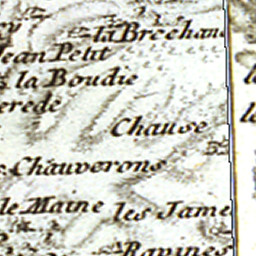 la Brechan
Jean Petit
la Boudie
erede
Chause
Chauverons
le Maine
les Jame
Ravines